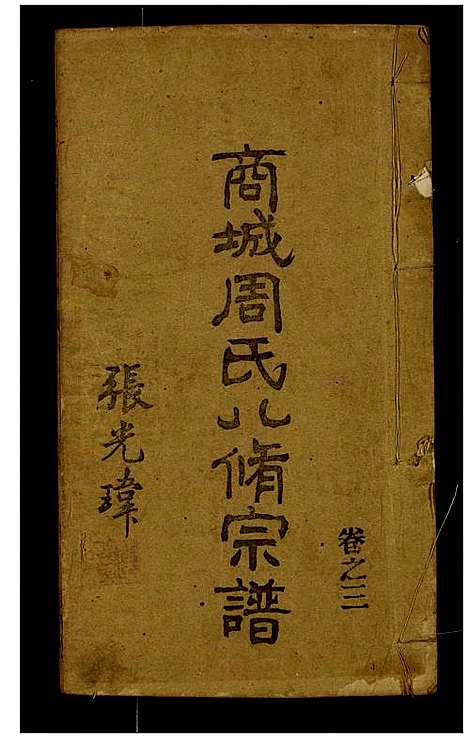 卷之三
商城周氏八脩宗譜
張光瑋